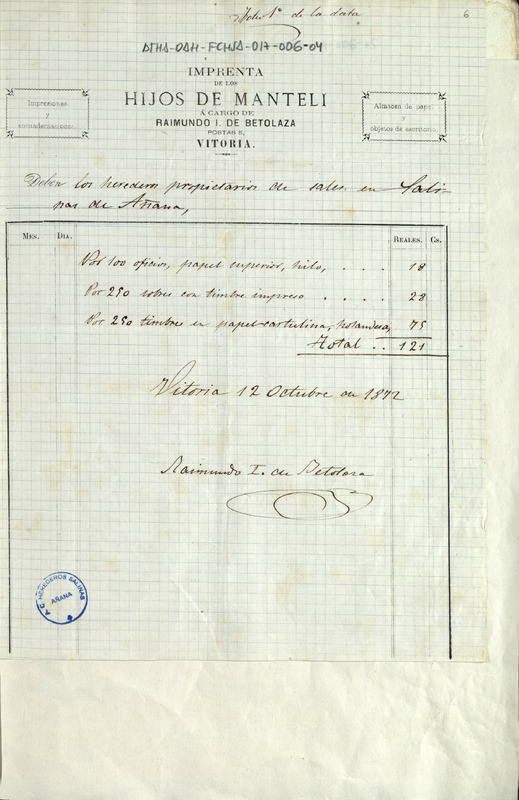 de la data
6
ATHA-DAH-FCHSA-017-006-04
IMPRENTA
DE LOS
HIJOS DE MANTELI
Á CARGO DE
RAIMUNDO I. DE BETOLAZA
POSTAS 5,
VITORIA.
Impresiones
y
encuadernaciones.
Almacen de papel
y
objetos de escritorio.
Deben los herederos propietarios de sales en Sali-
nas de Añana,
MES. DIA. REALES. CS.
Por 100 oficios, papel superior, hilo, . . . . 18
Por 250 sobres con timbre impreso . . . . 28
Por 250 timbres en papel-cartulina, holandesa, 75
Total . . 121
Vitoria 12 Octubre de 1872
Raimundo I. de Betolaza
A.C. HEREDEROS SALINAS
AÑANA